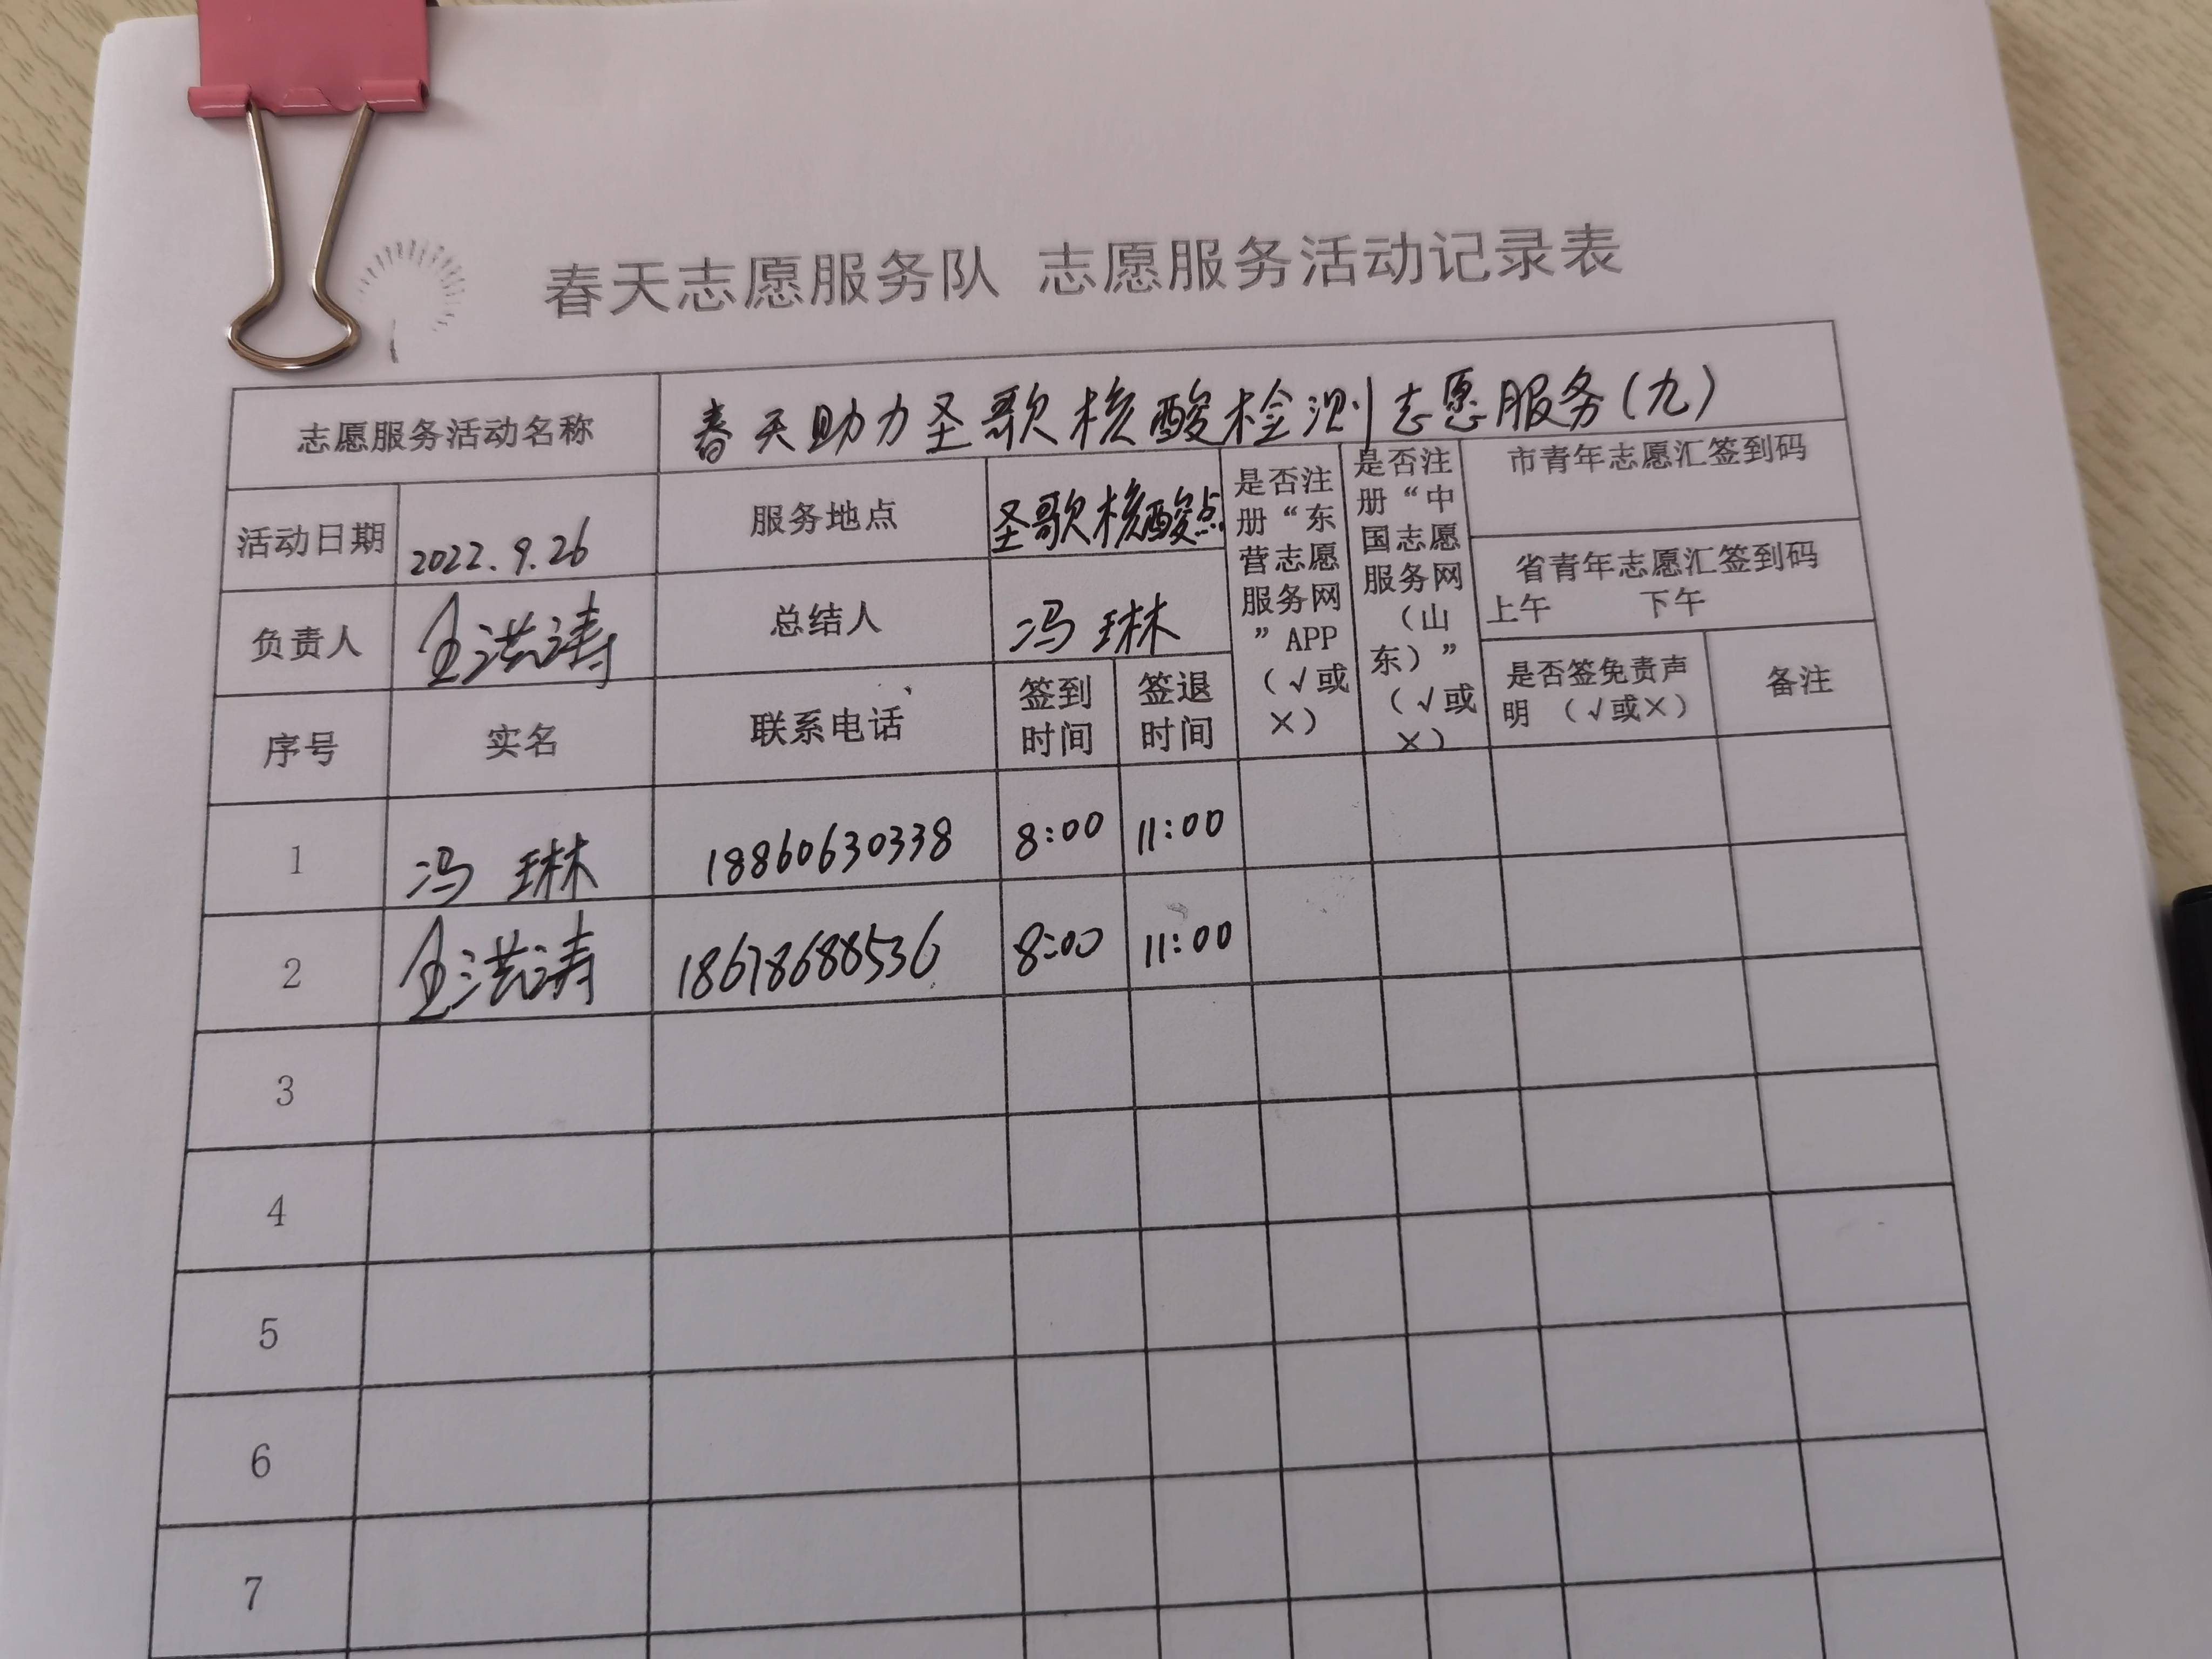 春天志愿服务队 志愿服务活动记录表
志愿服务活动名称 春天助力圣歌核酸检测志愿服务(九)
活动日期 2022.9.26 服务地点 圣歌核酸点
是否注册“东营志愿服务网”APP（√或×）
是否注册“中国志愿服务网（山东）”（√或×）
市青年志愿汇签到码
省青年志愿汇签到码
上午 下午
负责人 洪涛 总结人 冯琳
序号 实名 联系电话 签到时间 签退时间 是否签免责声明（√或×） 备注
1 冯琳 18860630338 8:00 11:00
2 洪涛 18678688536 8:00 11:00
3
4
5
6
7